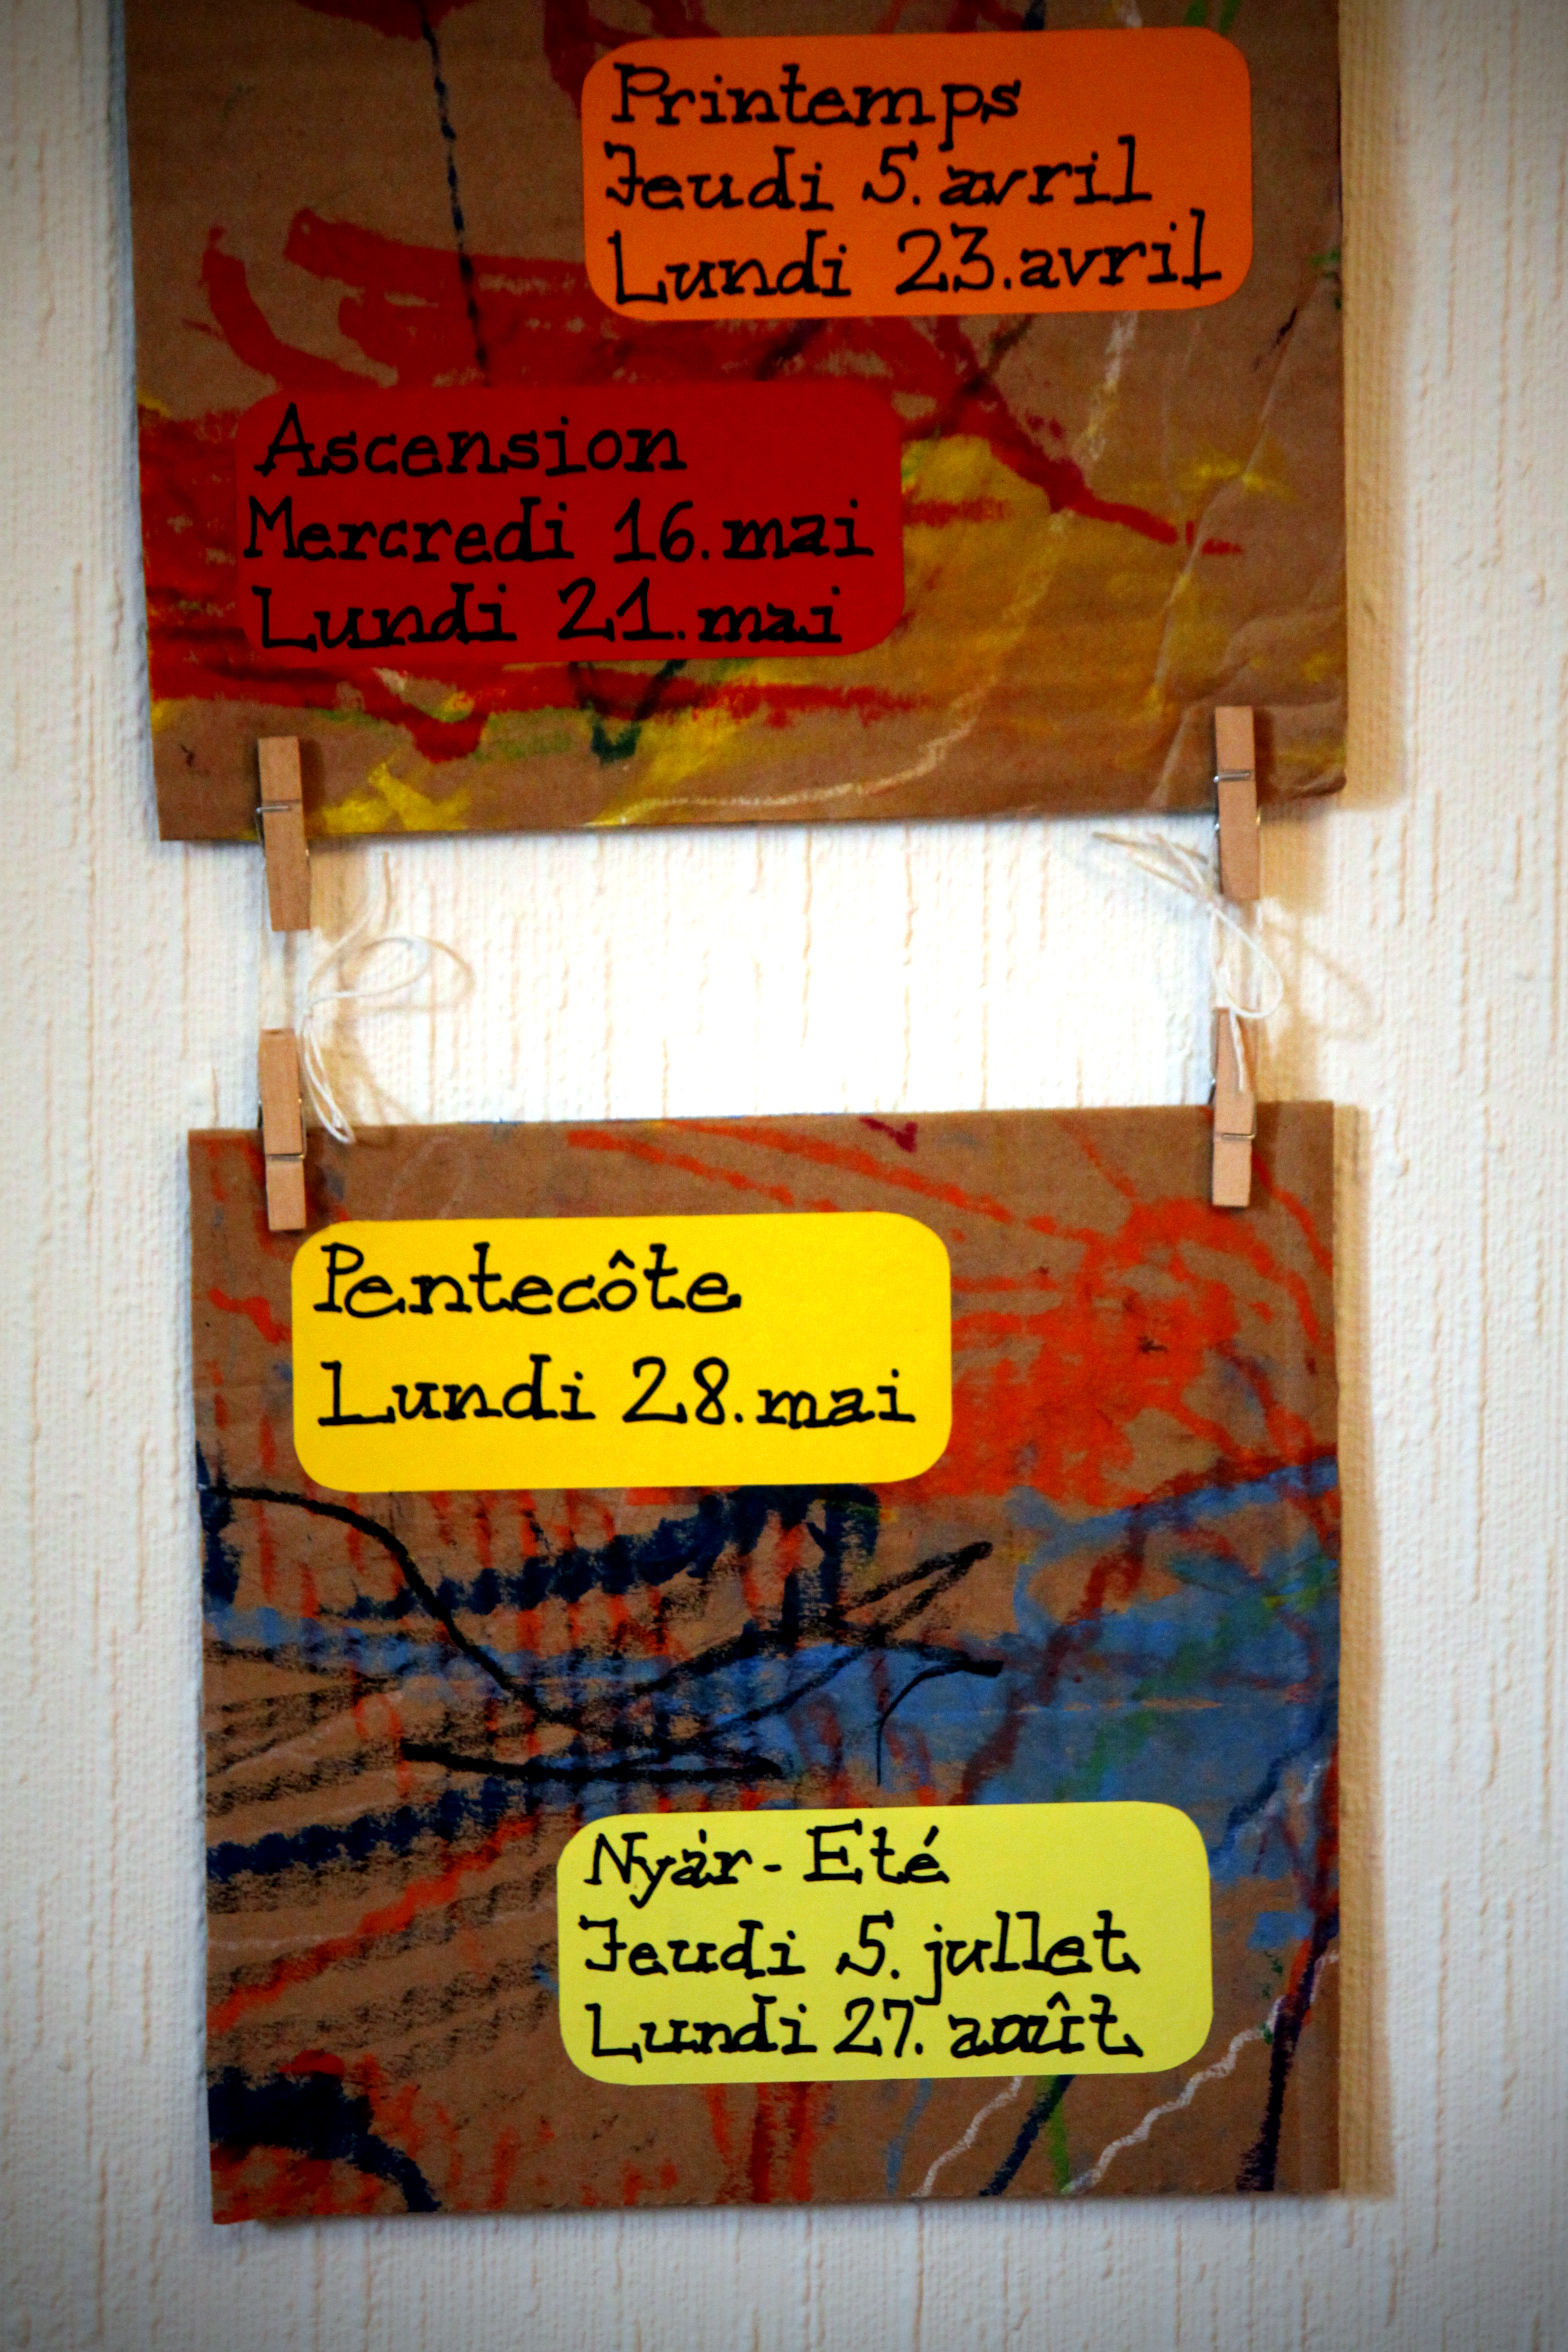 Printemps
Jeudi 5. avril
Lundi 23. avril
Ascension
Mercredi 16. mai
Lundi 21. mai
Pentecôte
Lundi 28. mai
Nyár - Eté
Jeudi 5. jullet
Lundi 27. août